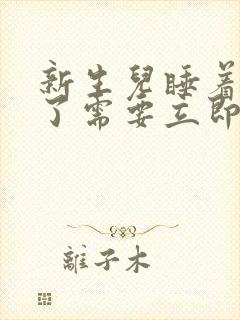 新生兒睡着
了需要立即
離子木